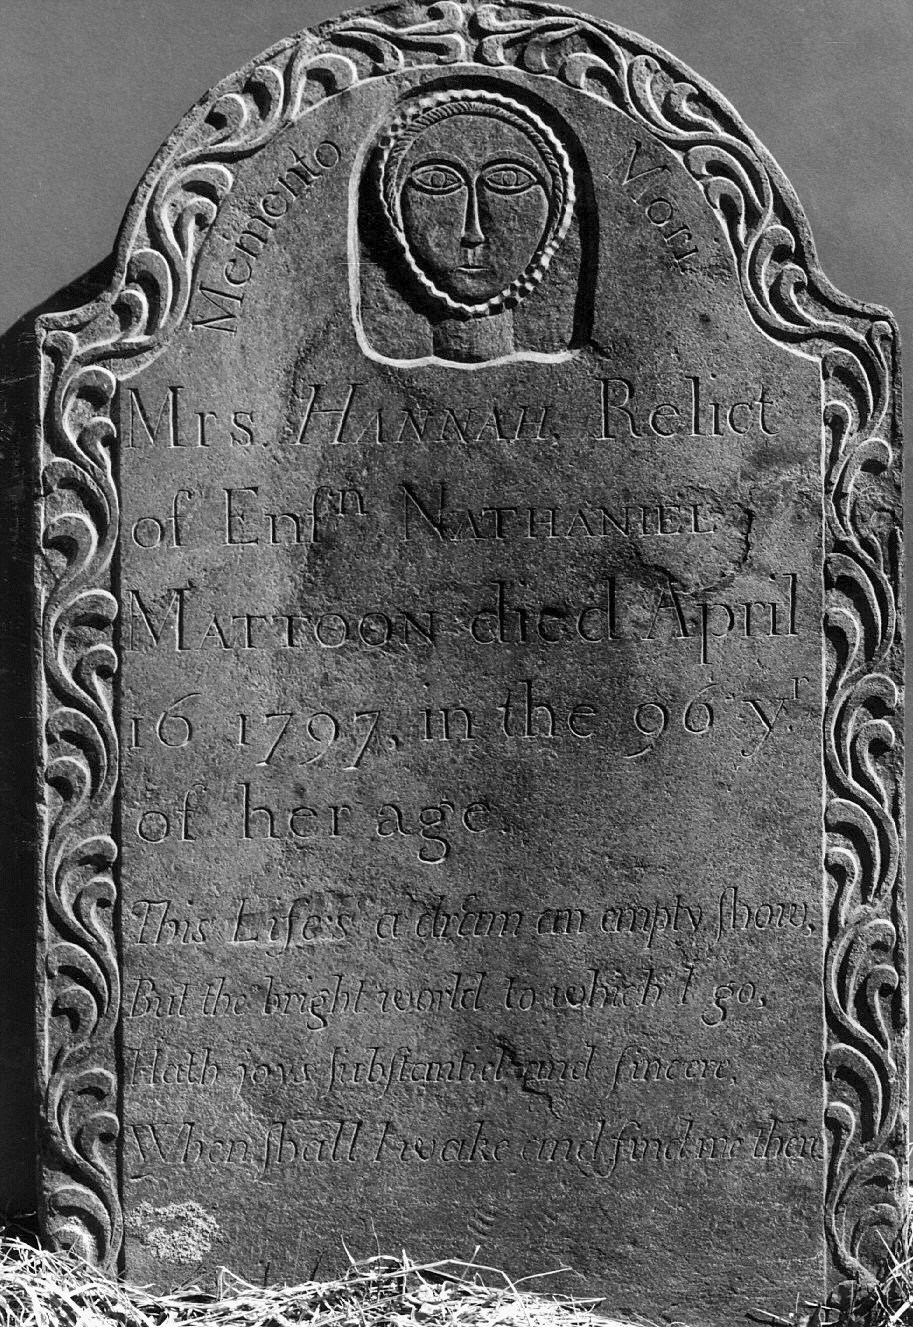 Memento Mori
Mrs. HANNAH. Relict
of Enſn NATHANIEL
MATTOON died April
16 1797, in the 96 yr
of her age.
This Life's a dream an empty ſhow,
But the bright world to which I go,
Hath joys ſubſtantiel and ſincere,
When ſhall I wake and find me there